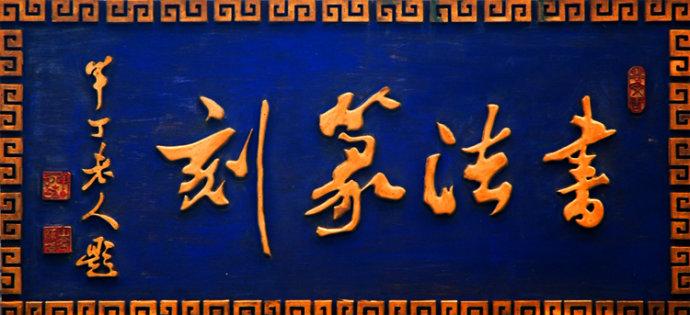 書法篆刻
半丁老人題